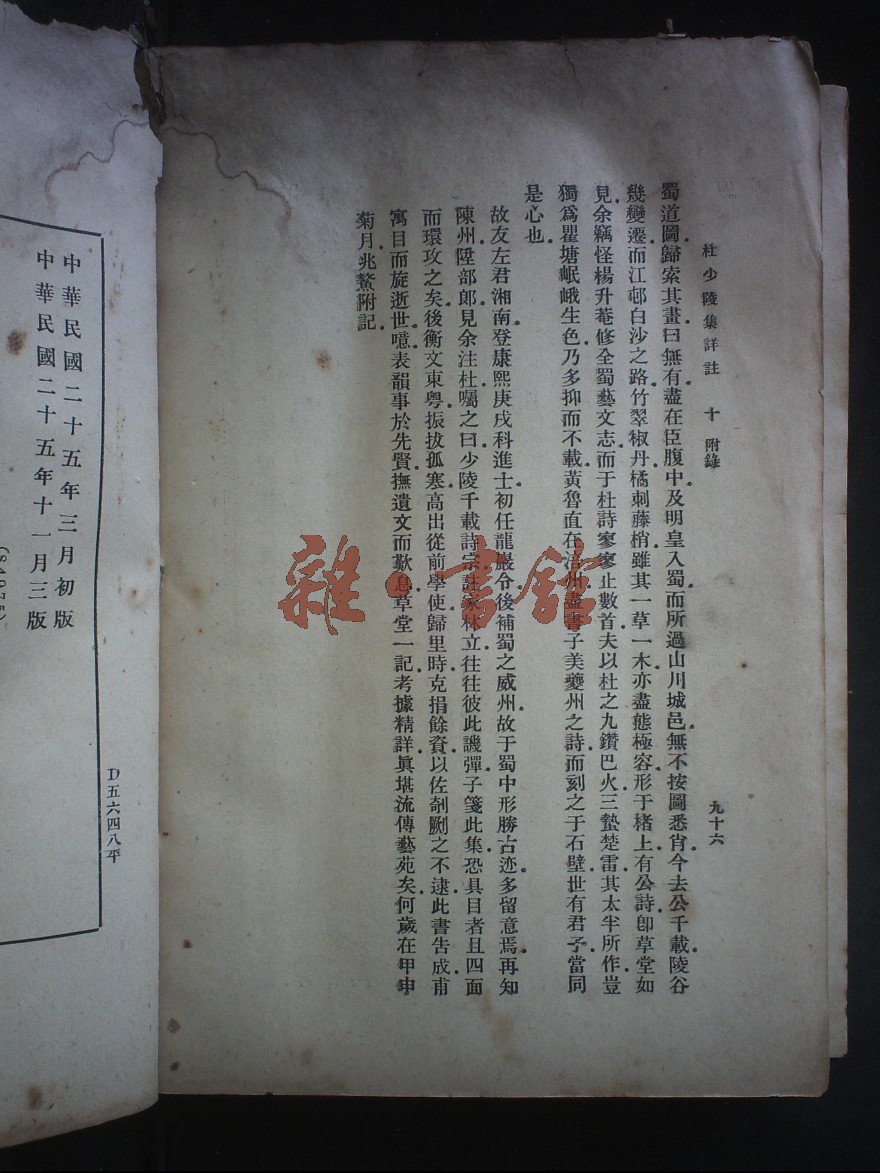 杜少陵集詳註 十 附錄 九十六
蜀道圖歸索其畫曰無有盡在臣腹中及明皇入蜀而所過山川城邑無不按圖悉肖今去公千載陵谷
幾變遷而江邨白沙之路竹翠椒丹橘刺藤梢雖其一草一木亦盡態極容形于楮上有公詩卽草堂如
見余竊怪楊升菴修全蜀藝文志而于杜詩寥寥止數首夫以杜之九鑽巴火三蟄楚雷其太半所作豈
獨爲瞿塘岷峨生色乃多抑而不載黃魯直在涪州盡書子美夔州之詩而刻之于石壁世有君子當同
是心也
故友左君湘南登康熙庚戌科進士初任龍巖令後補蜀之威州故于蜀中形勝古迹多留意焉再知
陳州陞部郎見余注杜囑之曰少陵千載詩宗註家林立往往彼此譏彈子箋此集恐具目者且四面
而環攻之矣後衡文東粵振拔孤寒高出從前學使歸里時克捐餘資以佐剞劂之不逮此書告成甫
寓目而旋逝世噫表韻事於先賢撫遺文而歎息草堂一記考據精詳眞堪流傳藝苑矣何歲在甲申
菊月兆鰲附記
中華民國二十五年三月初版
中華民國二十五年十一月三版
D五六四八平
雜書館